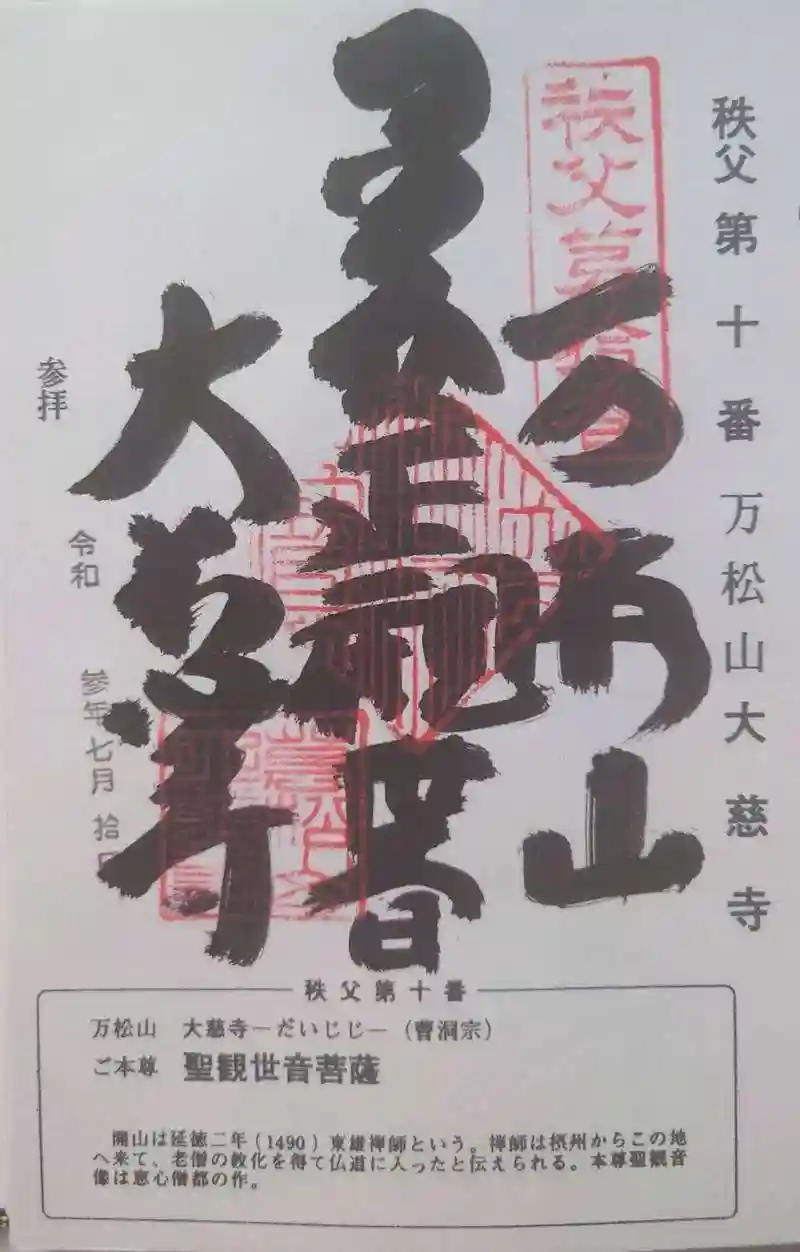 秩父第十番 万松山大慈寺
秩父第拾番
万松山
聖観音
大慈寺
参拝 令和 参年七月 拾日
秩父第十番
万松山 大慈寺―だいじじ―（曹洞宗）
ご本尊 聖観世音菩薩
開山は延徳二年（1490）東雄禅師という。禅師は摂州からこの地
へ来て、老僧の教化を得て仏道に入ったと伝えられる。本尊聖観音
像は恵心僧都の作。